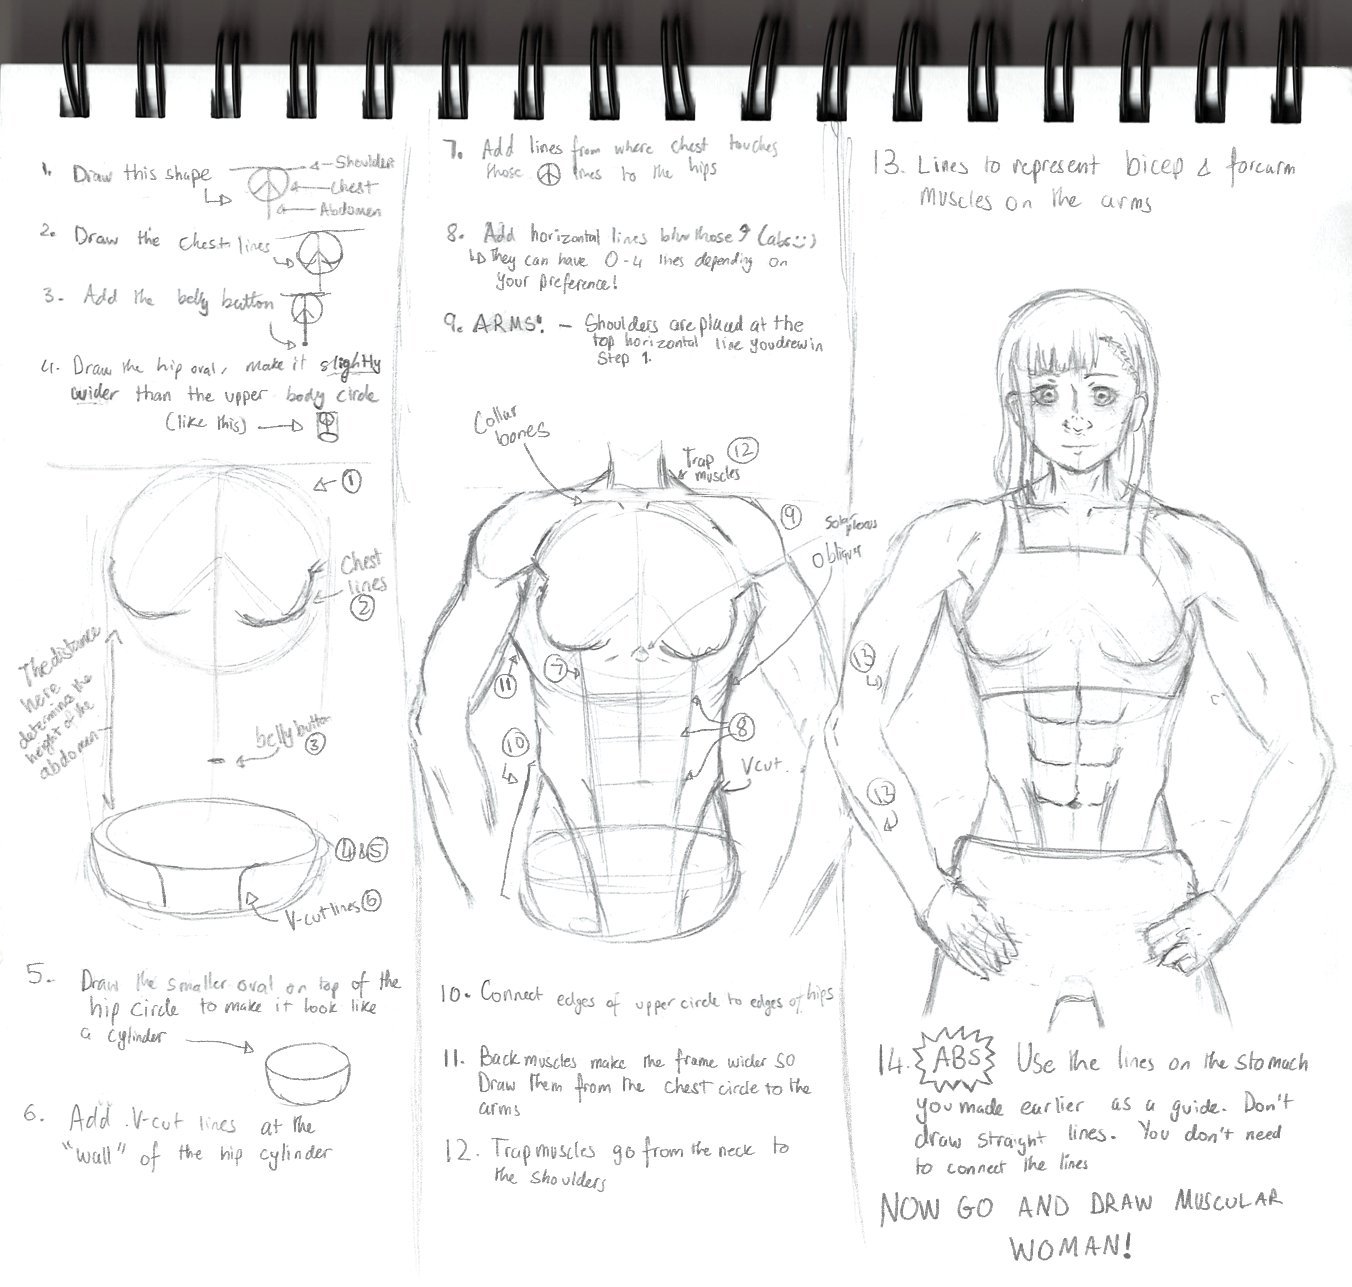 1. Draw this shape
Shoulder
Chest
Abdomen
2. Draw the chest lines
3. Add the belly button
4. Draw the hip oval, make it slightly
wider than the upper body circle
(like this)
1
Chest
lines
2
The distance
here
determines the
height of the
abdomen
belly button
3
4 & 5
V-cut lines 6
5. Draw the smaller oval on top of the
hip circle to make it look like
a cylinder
6. Add V-cut lines at the
"wall" of the hip cylinder
7. Add lines from where chest touches
those lines to the hips
8. Add horizontal lines btw those (abs :))
They can have 0-4 lines depending on
your preference!
9. ARMS! - Shoulders are placed at the
top horizontal line you drew in
Step 1.
Collar
bones
Trap 12
muscles
9
Solar
plexus
Oblique
7
11
8
10
V cut.
10. Connect edges of upper circle to edges of hips
11. Back muscles make the frame wider so
Draw them from the chest circle to the
arms
12. Trap muscles go from the neck to
the shoulders
13. Lines to represent bicep & forearm
muscles on the arms
13
13
14. ABS Use the lines on the stomach
you made earlier as a guide. Don't
draw straight lines. You don't need
to connect the lines
NOW GO AND DRAW MUSCULAR
WOMAN!